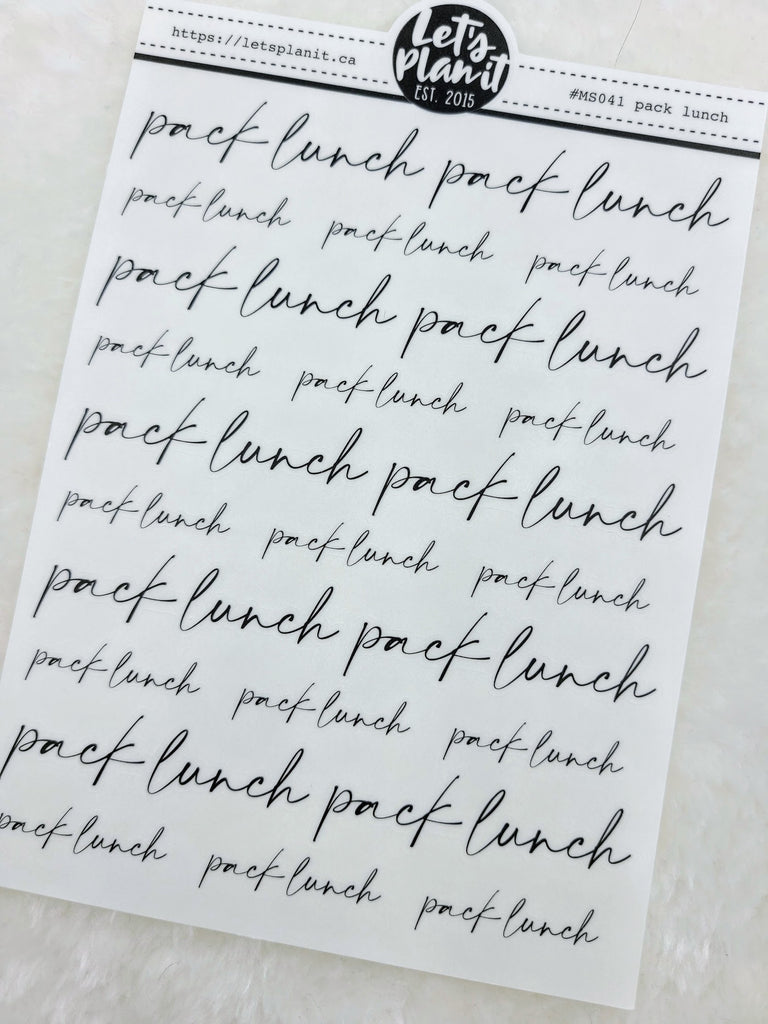 https://letsplanit.ca
Let's
plan it
EST. 2015
#MS041 pack lunch
pack lunch pack lunch
pack lunch pack lunch pack lunch
pack lunch pack lunch
pack lunch pack lunch pack lunch
pack lunch pack lunch
pack lunch pack lunch pack lunch
pack lunch pack lunch
pack lunch pack lunch pack lunch
pack lunch pack lunch
pack lunch pack lunch pack lunch